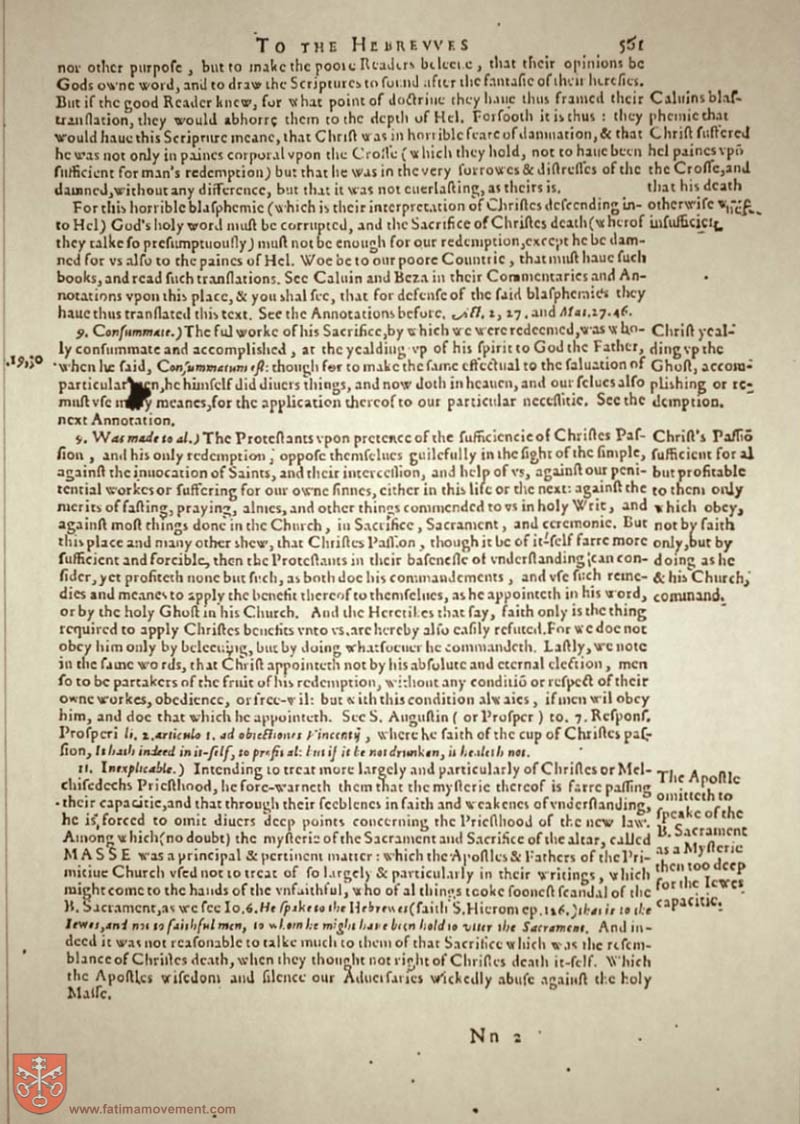 TO THE HEBREVVES 561
nor other purpose, but to make the poore Readers beleeue, that their opinions be
Gods owne word, and to draw the Scriptures to sound after the fantasie of their heresies.
But if the good Reader knew, for what point of doctrine they haue thus framed their
translation, they would abhorre them to the depth of Hel. Forsooth it is thus: they
would haue this Scripture meane, that Christ was in horrible feare of damnation, & that
he was not only in paines corporal vpon the Crosse (which they hold, not to haue been
sufficient for man's redemption) but that he was in the very sorrowes & distresses of the
damned, without any difference, but that it was not euerlasting, as theirs is.
Caluins blas-
phemie that
Christ suffered
hel paines vpõ
the Crosse, and
that his death
otherwise was
insufficient.
For this horrible blasphemie (which is their interpretation of Christes descending in-
to Hel) God's holy word must be corrupted, and the Sacrifice of Christes death (wherof
they talke so presumptuously) must not be enough for our redemption, except he be dam-
ned for vs also to the paines of Hel. Woe be to our poore Countrie, that must haue such
books, and read such translations. See Caluin and Beza in their Commentaries and An-
notations vpon this place, & you shal see, that for defense of the said blasphemies they
haue thus translated this text. See the Annotations before. Act. 2, 27. and Mat. 27. 46.
9. Consummate.) The ful worke of his Sacrifice, by which we were redeemed, was who-
ly consummate and accomplished, at the yealding vp of his spirit to God the Father,
when he said, Consummatum est: though for to make the same effectual to the saluation of
particular men, he himself did diuers things, and now doth in heauen, and our selues also
must vse many meanes, for the application thereof to our particular necessitie. See the
next Annotation.
.19,30
Christ yeal-
ding vp the
Ghost, accom-
plishing or re-
demption.
9. Was made to al.) The Protestants vpon pretence of the sufficiencie of Christes Pas-
sion, and his only redemption, oppose themselues guilefully in the sight of the simple,
against the inuocation of Saints, and their intercession, and help of vs, against our peni-
tential workes or suffering for our owne sinnes, either in this life or the next: against the
merits of fasting, praying, almes, and other things commended to vs in holy Writ, and
against most things done in the Church, in Sacrifice, Sacrament, and ceremonie. But
this place and many other shew, that Christes Passion, though it be of it-self farre more
sufficient and forcible, then the Protestants in their basenesse of vnderstanding can con-
sider, yet profiteth none but such, as both doe his commandements, and vse such reme-
dies and meanes to apply the benefit thereof to themselues, as he appointeth in his word,
or by the holy Ghost in his Church. And the Heretikes that say, faith only is the thing
required to apply Christes benefits vnto vs, are hereby also easily refuted. For we doe not
obey him only by beleeuing, but by doing whatsoeuer he commandeth. Lastly, we note
in the same words, that Christ appointeth not by his absolute and eternal election, men
so to be partakers of the fruit of his redemption, without any conditiõ or respect of their
owne workes, obedience, or free-wil: but with this condition alwaies, if men wil obey
him, and doe that which he appointeth. See S. Augustin (or Prosper) to. 7. Respons.
Prosperi li. 2. articulo 1. ad obiectiones Vincentij, where he saith of the cup of Christes pas-
sion, It hath indeed in it-self, to profit al: but if it be not drunken, it healeth not.
Christ's Passiõ
sufficient for al
but profitable
to them only
which obey,
not by faith
only, but by
doing as he
& his Church,
command.
11. Inexplicable.) Intending to treat more largely and particularly of Christes or Mel-
chisedechs Priesthood, he fore-warneth them that the mysterie thereof is farre passing
their capacitie, and that through their feeblenes in faith and weakenes of vnderstanding,
he is forced to omit diuers deep points concerning the Priesthood of the new law.
Among which (no doubt) the mysterie of the Sacrament and Sacrifice of the altar, called
MASSE was a principal & pertinent matter: which the Apostles & Fathers of the Pri-
mitiue Church vsed not to treat of so largely & particularly in their writings, which
might come to the hands of the vnfaithful, who of al things tooke soonest scandal of the
B. Sacrament, as we see Io. 6. He spake to the Hebrewes (saith S. Hierom ep. 126.) that is to the
Iewes, and not to faithful men, to whom he might haue been bold to vtter the Sacrament. And in-
deed it was not reasonable to talke much to them of that Sacrifice which was the resem-
blance of Christes death, when they thought not right of Christes death it-self. Which
the Apostles wisedom and silence our Aduersaries wickedly abuse against the holy
Masse.
The Apostle
omitteth to
speake of the
B. Sacrament
as a Mysterie
then too deep
for the Iewes
capacitie.
Nn 2
www.fatimamovement.com